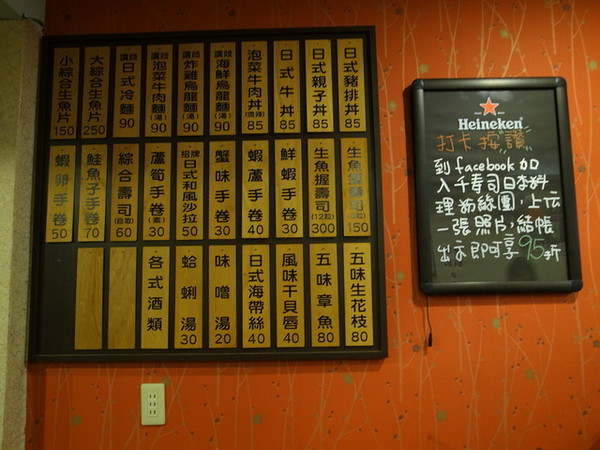 日式豬排丼 85
日式親子丼 85
日式牛丼 85
泡菜牛肉丼(微辣) 85
讚岐海鮮烏龍麵(湯) 90
讚岐炸雞烏龍麵(湯) 90
讚岐泡菜牛肉麵(湯) 90
讚岐日式冷麵 90
大綜合生魚片 250
小綜合生魚片 150
生魚握壽司 150
生魚握壽司(12粒) 300
鮮蝦手卷 30
蝦蘆手卷 40
蟹味手卷 30
招牌日式和風沙拉 50
蘆筍手卷(素) 30
綜合壽司(自取) 60
鮭魚子手卷 70
蝦卵手卷 50
五味生花枝 80
五味章魚 80
風味干貝唇 40
日式海帶絲 40
味噌湯 20
蛤蜊湯 30
各式酒類
Heineken
打卡按讚
到facebook加
入千壽司日本料
理粉絲團,上傳
一張照片,結帳
出示即可享95折